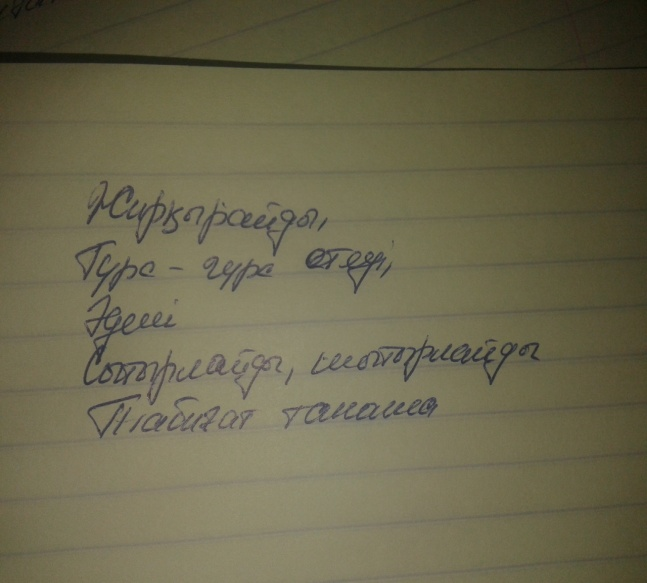 Жирқырайды,
Гүрс - гүрс етеді,
Әдемі
Сытырлайды, шытырлайды
Табиғат тамаша